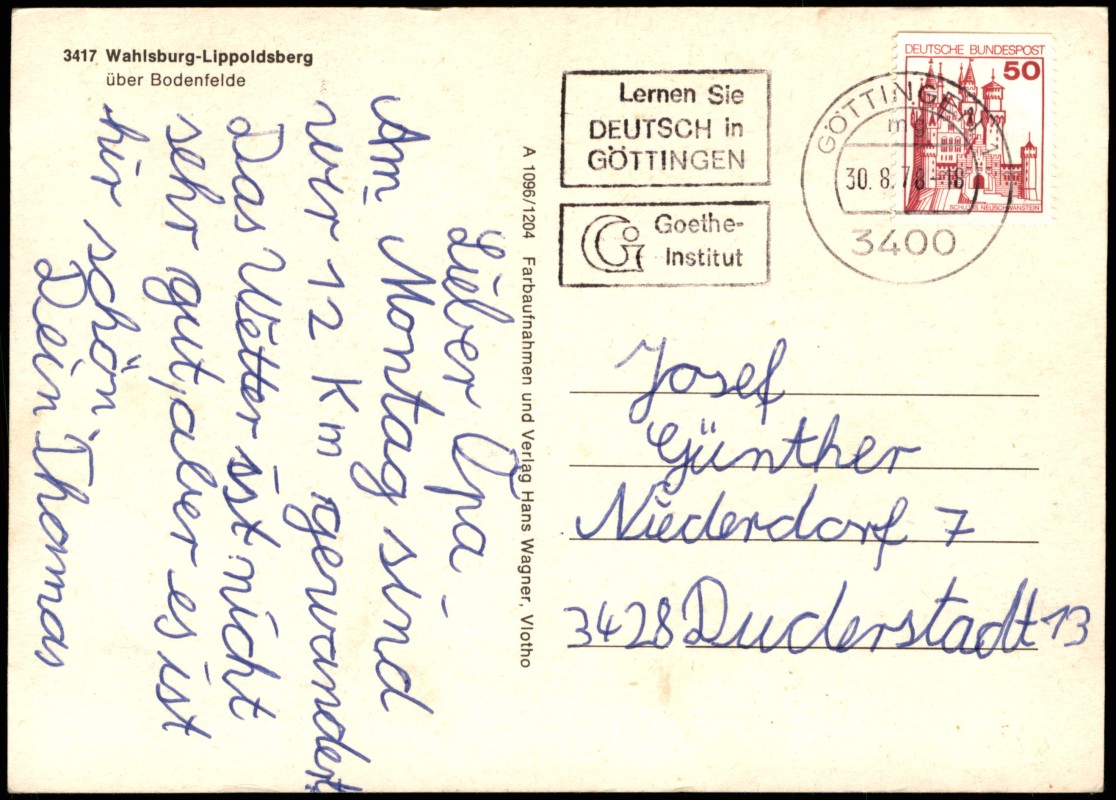 3417 Wahlsburg-Lippoldsberg
über Bodenfelde
Lieber Opa
Am Montag sind
wir 12 Km gewandert
Das Wetter ist nicht
sehr gut, aber es ist
hir schön
Dein Thomas
A 1096/1204 Farbaufnahmen und Verlag Hans Wagner, Vlotho
Lernen Sie
DEUTSCH in
GÖTTINGEN
Goethe-
Institut
GÖTTINGEN 1
mg
30. 8. 78 - 18
3400
DEUTSCHE BUNDESPOST
50
SCHLOSS NEUSCHWANSTEIN
Josef
Günther
Niederdorf 7
3428 Duderstadt 13